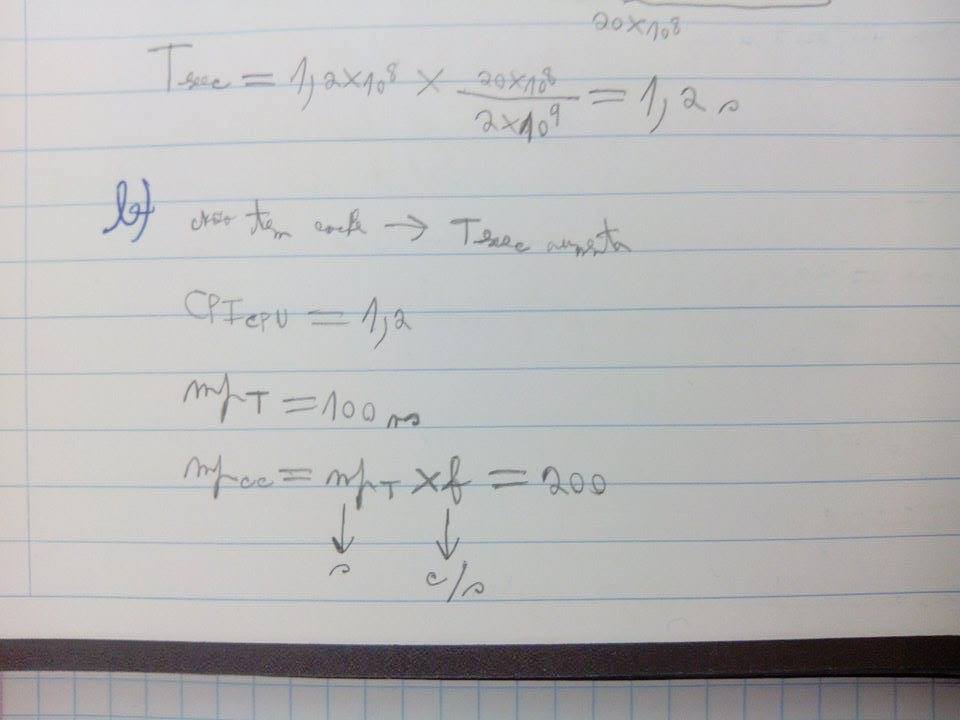 20x10⁸
Texec = 1,2x10⁸ x 20x10⁸/2x10⁹ = 1,2 s
b) não tem cache → Texec aumenta
CPI CPU = 1,2
mpT = 100 ns
mpcc = mpT x f = 200
↓ ↓
s c/s